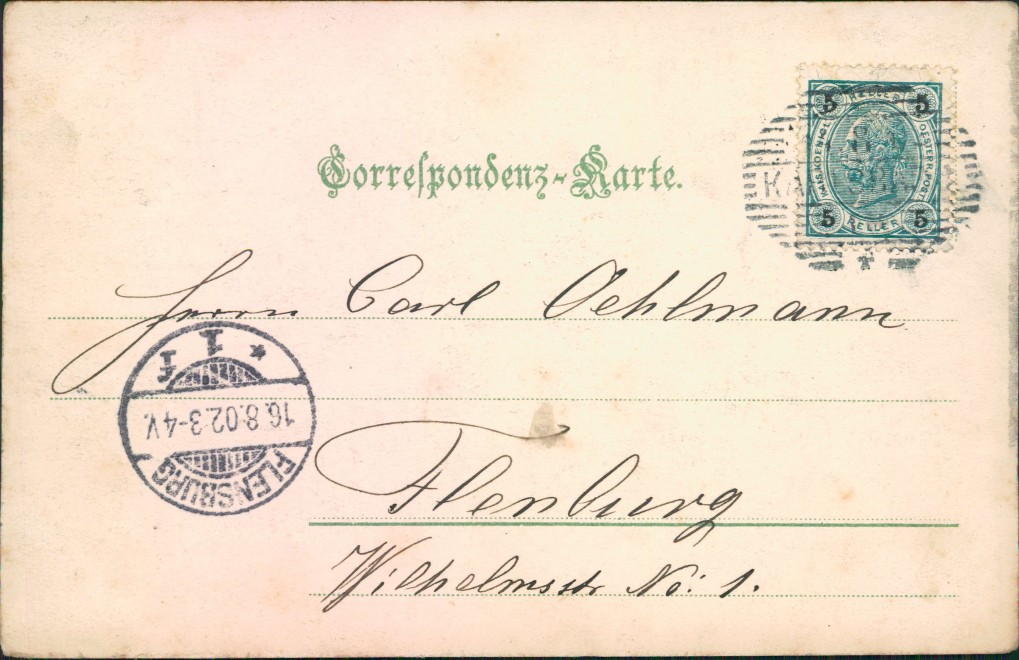 Correspondenz-Karte.
5 HELLER 5
KAIS. KOENIGL. OESTERR. POST
5 HELLER 5
Herrn Carl Oehlmann
* 1 f
16.8.02.3-4V.
FLENSBURG
Flensburg
Wilhelmsstr No: 1.